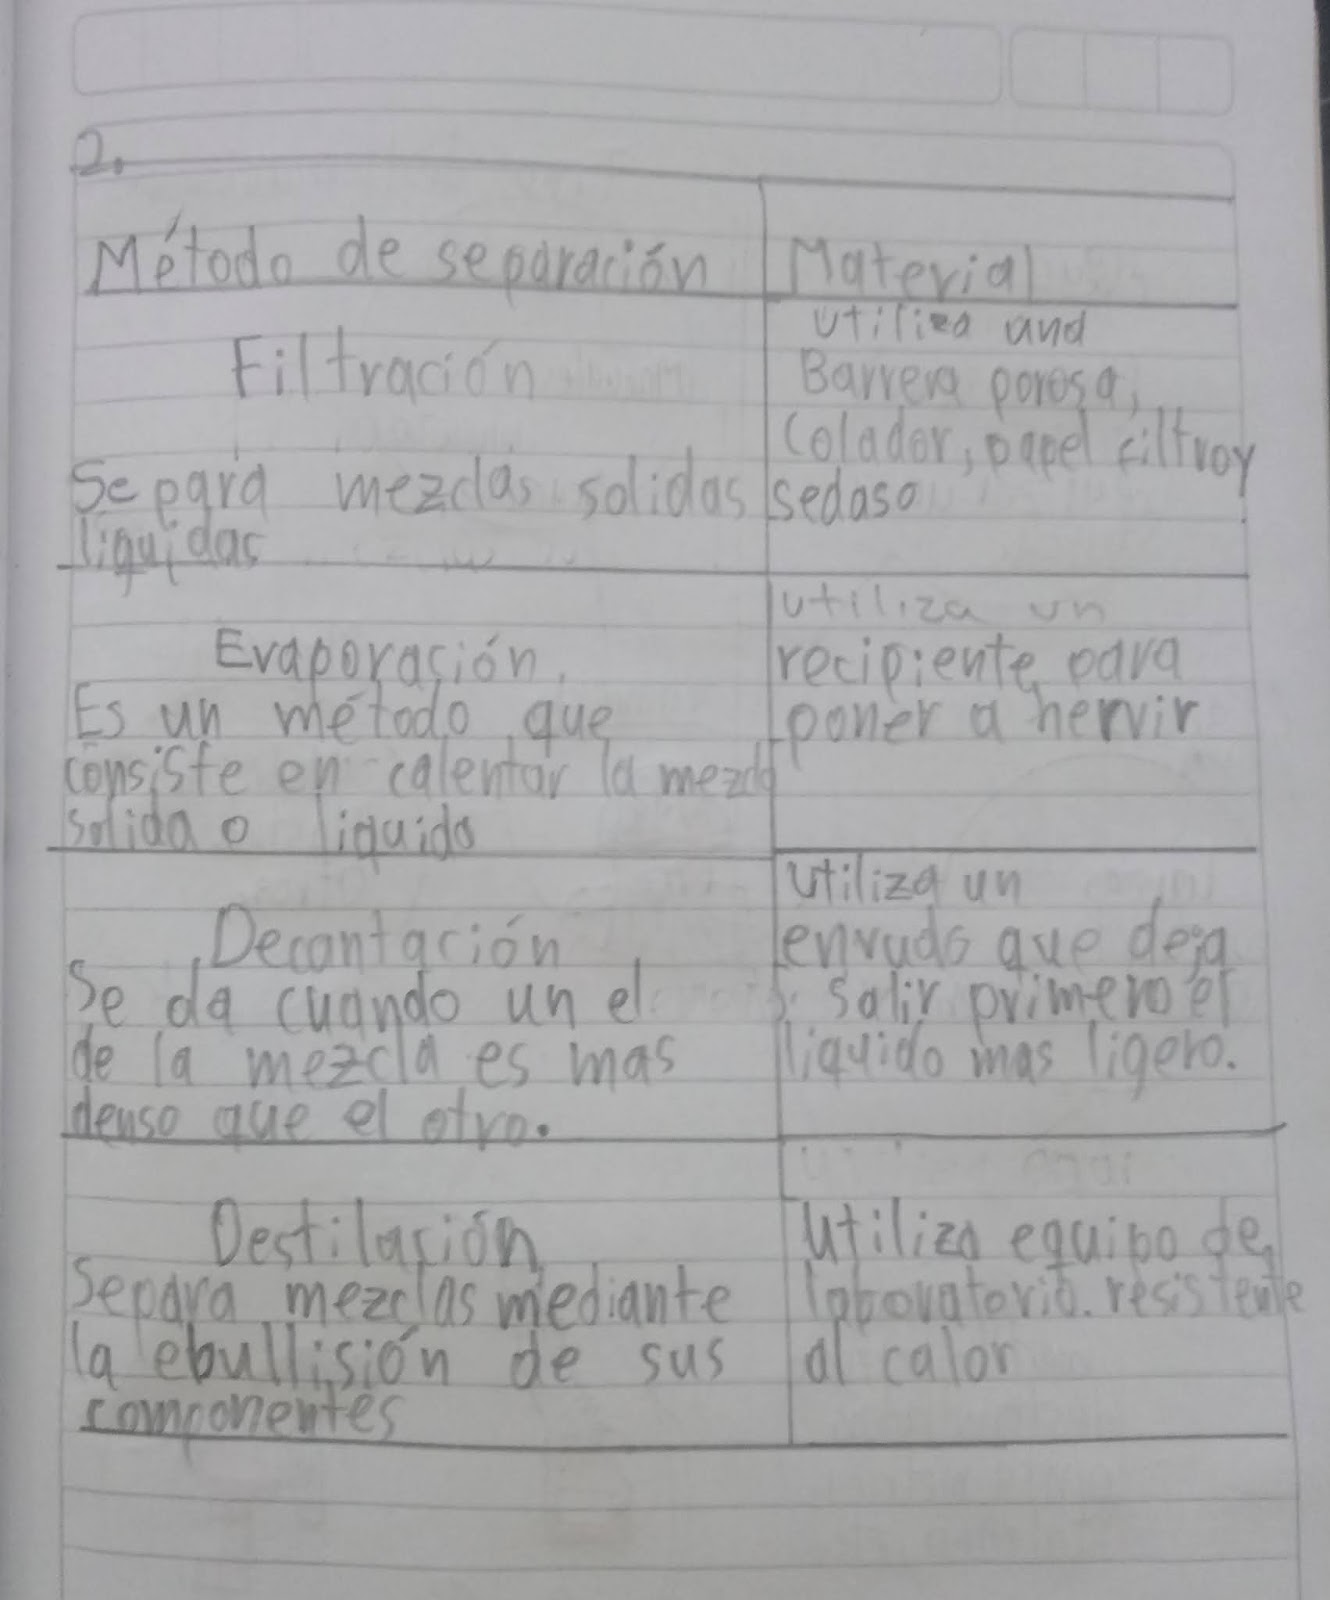 2.
Método de separación
Material
Filtración
Separa mezclas solidas
liquidas
utiliza una
Barrera porosa,
Colador, papel filtro y
sedaso
Evaporación
Es un método que
consiste en calentar la mezcla
solida o liquida
utiliza un
recipiente para
poner a hervir
Decantación
Se da cuando un el
de la mezcla es mas
denso que el otro.
utiliza un
que deja
salir primero el
liquido mas ligero.
Destilación
Separa mezclas mediante
la ebullisión de sus
componentes
utiliza equipo de
laboratorio resistente
al calor